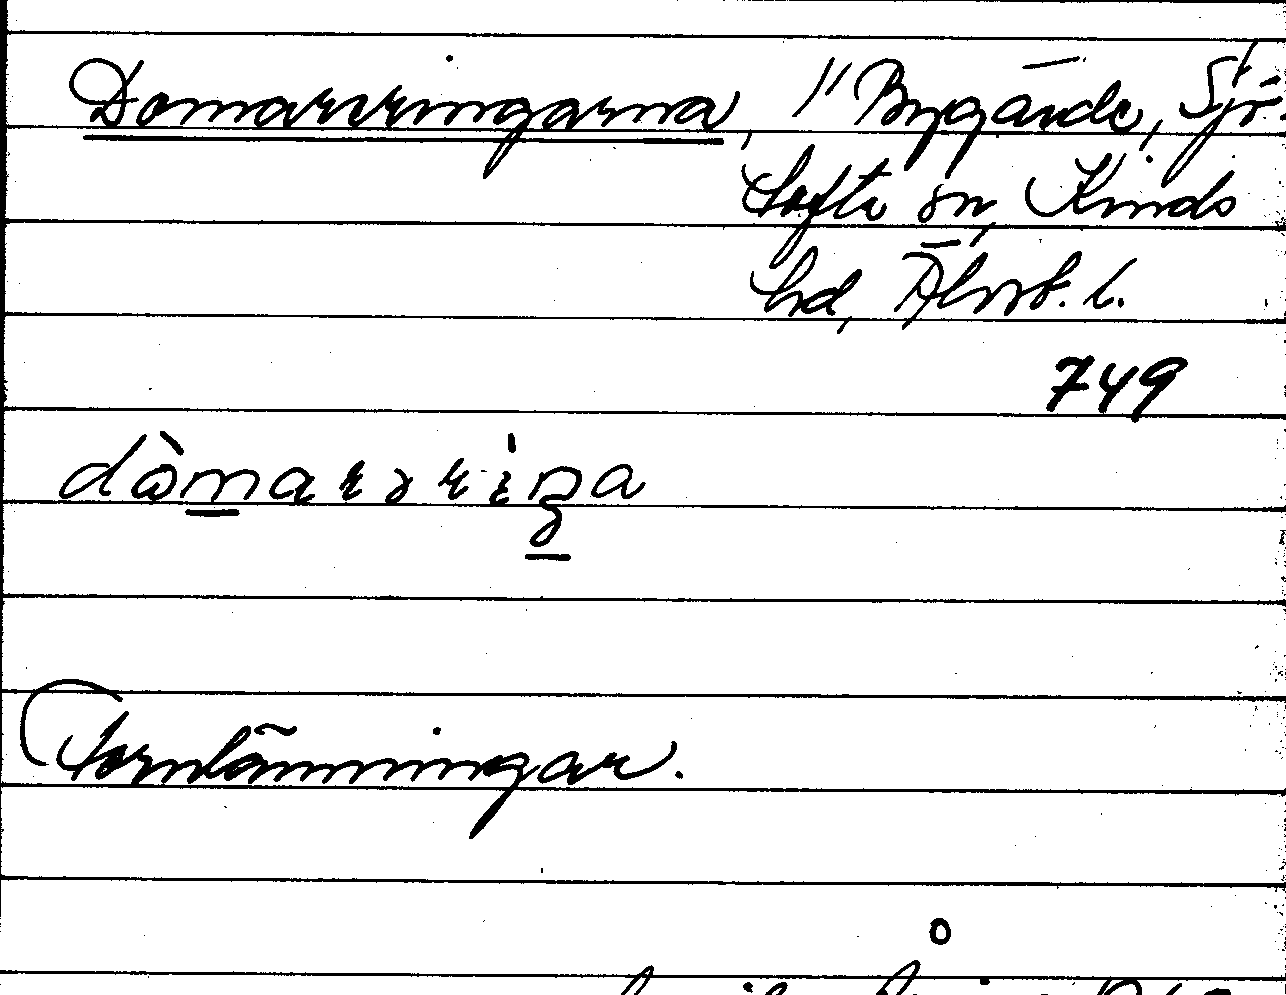 Domarringarna, 1/1 Bygärde, Sjö-
tofta sn, Kinds
hd, Älvsb. l.
749
dòmarəriŋa
Fornlämningar.